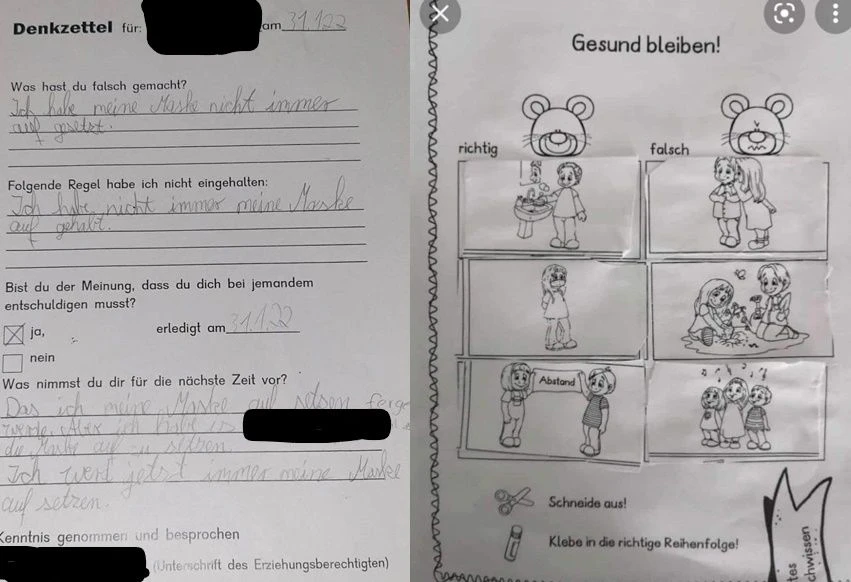 Denkzettel für: am 31.1.22
Was hast du falsch gemacht?
Ich habe meine Maske nicht immer
auf gesetzt.
Folgende Regel habe ich nicht eingehalten:
Ich habe nicht immer meine Maske
auf gehabt.
Bist du der Meinung, dass du dich bei jemandem
entschuldigen musst?
ja, erledigt am 31.1.22
nein
Was nimmst du dir für die nächste Zeit vor?
Das ich meine Maske auf setsen
werde. Aber ich habe es
die Maske auf zu setzen
Ich werd jetst immer meine Maske
auf setzen.
Kenntnis genommen und besprochen
(Unterschrift des Erziehungsberechtigten)
Gesund bleiben!
richtig
falsch
Abstand
Schneide aus!
Klebe in die richtige Reihenfolge!
chwissen